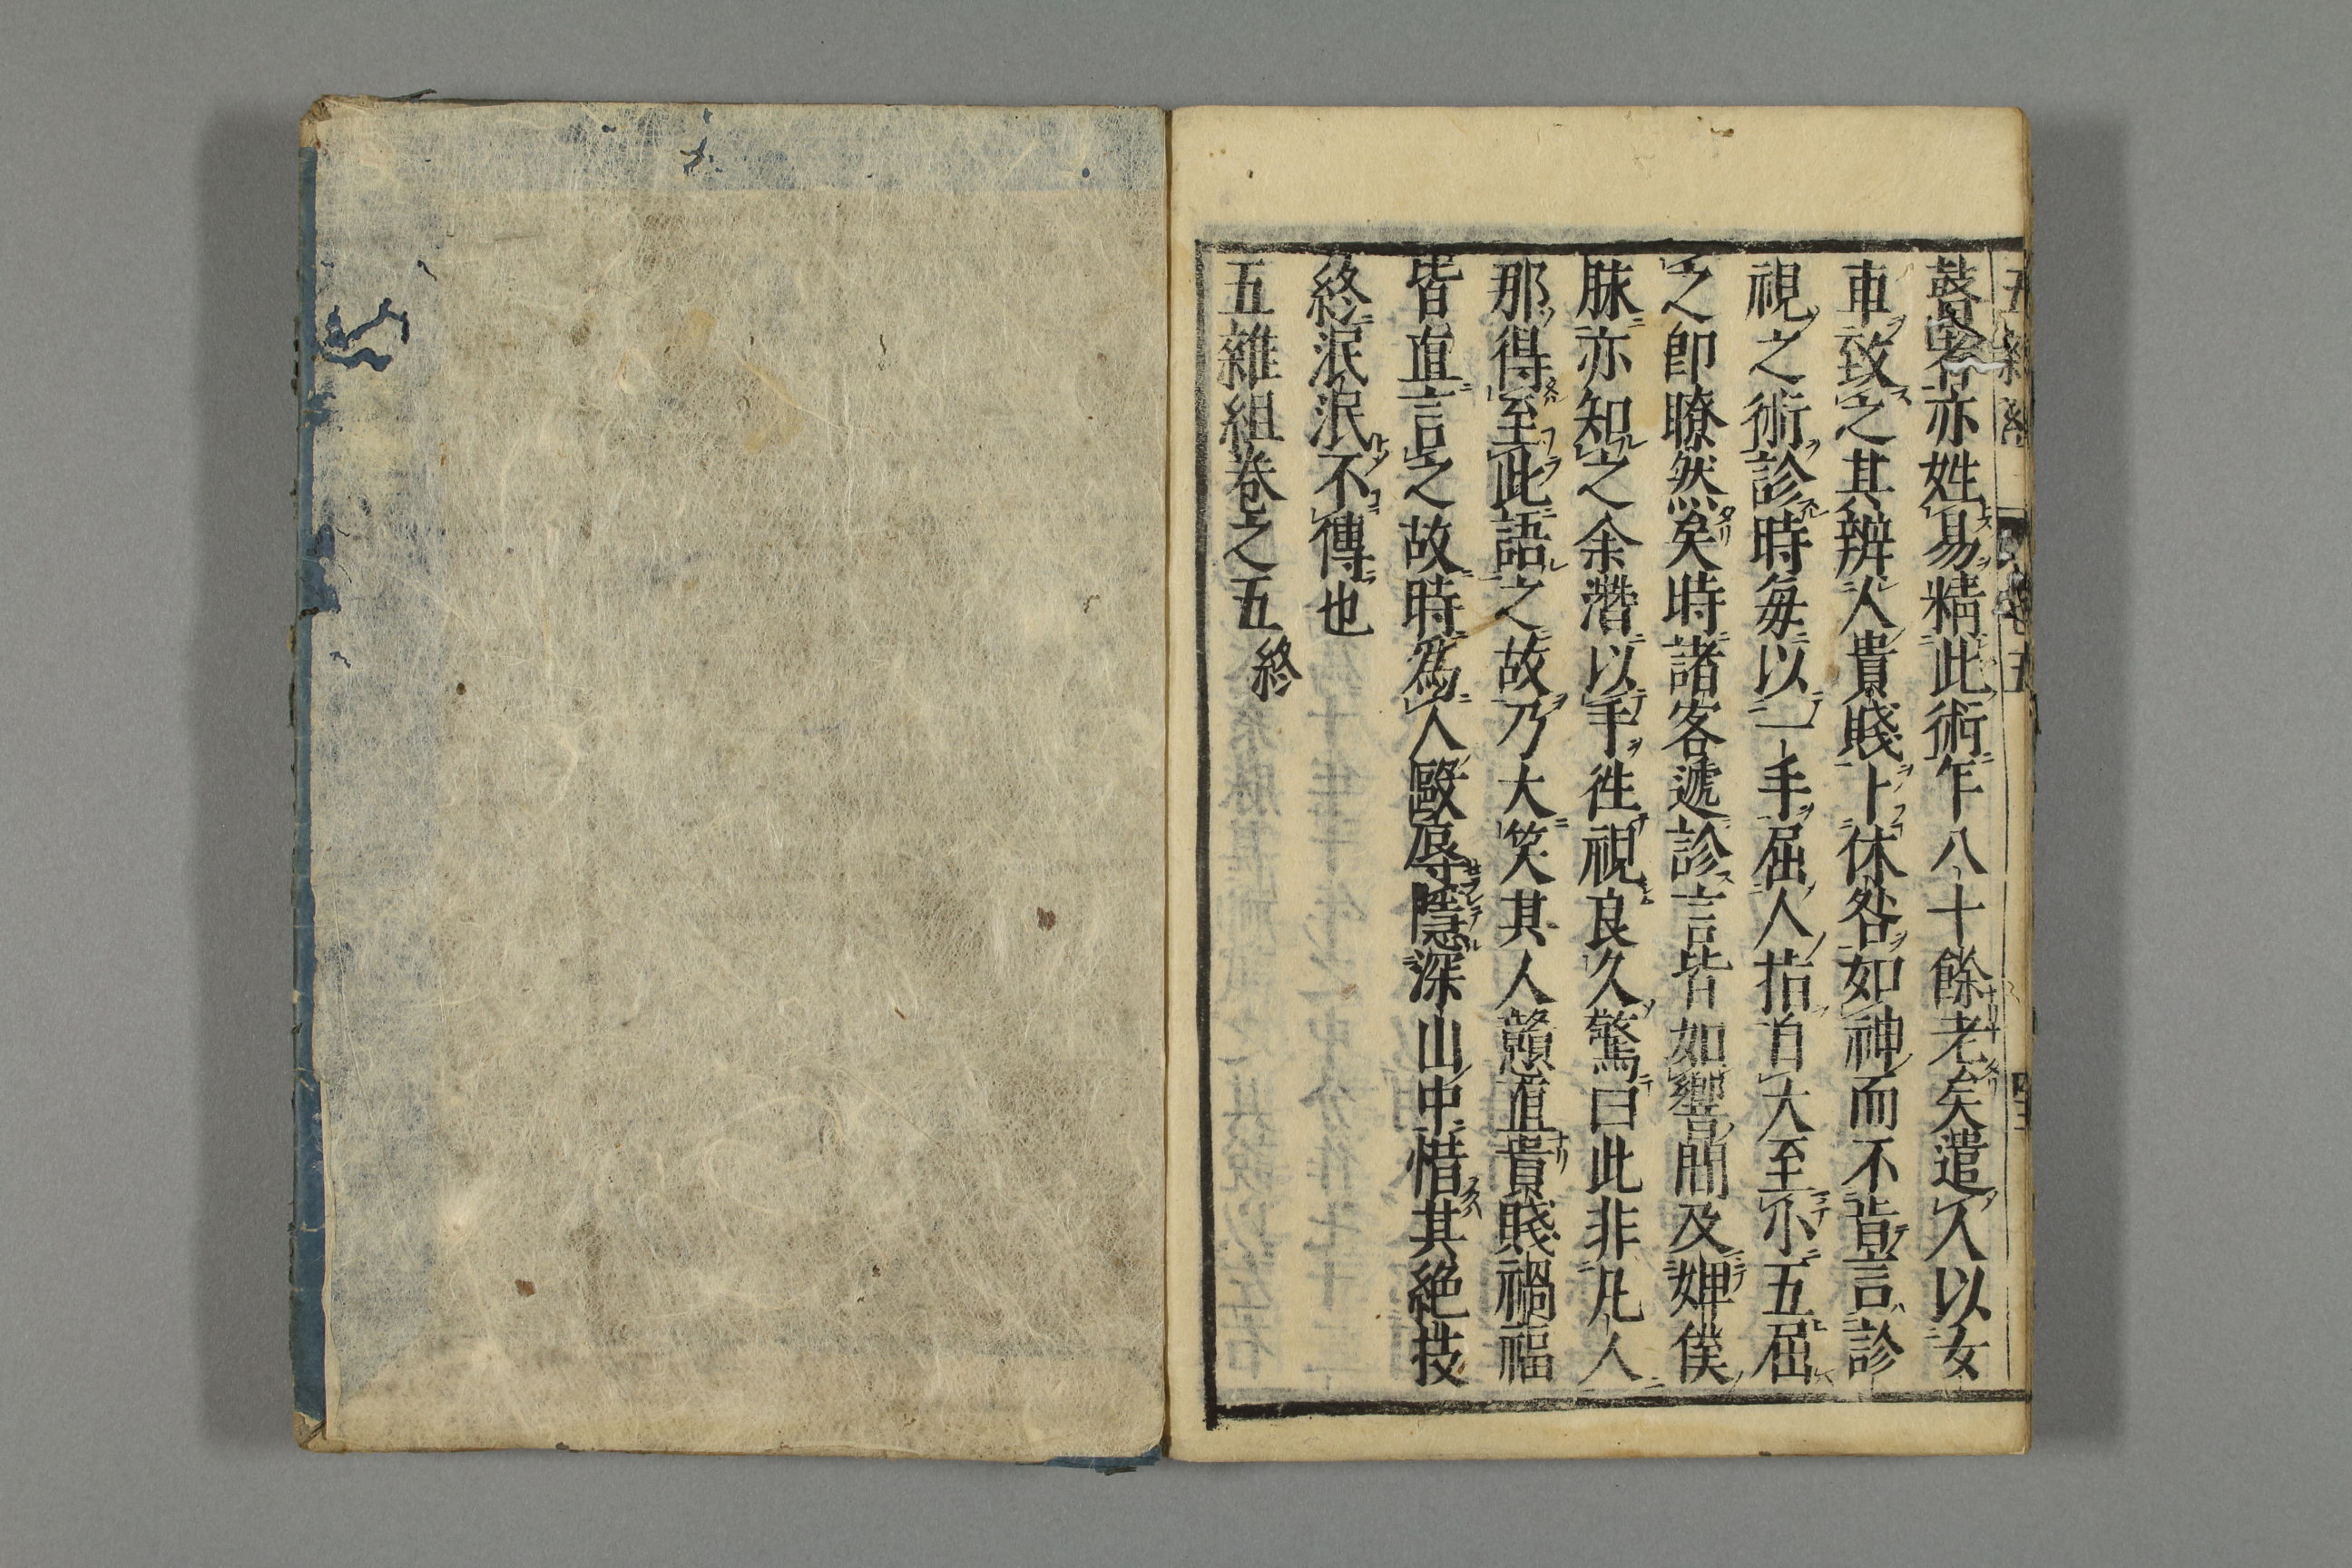 瞽者亦姓易精此術年八十餘老矣遣人以女
車致之其辨人貴賤卜休咎如神而不肯言診
視之術診時每以一手屈人指自大至小五屈
之即瞭然矣時諸客遞診言皆如響間及婢僕
脉亦知之余潛以手徃視良久驚曰此非凡人
那得至此語之故乃大笑其人戇直貴賤禍福
皆直言之故時爲人毆辱隱深山中惜其絶技
終泯泯不傳也
五雜組卷之五終